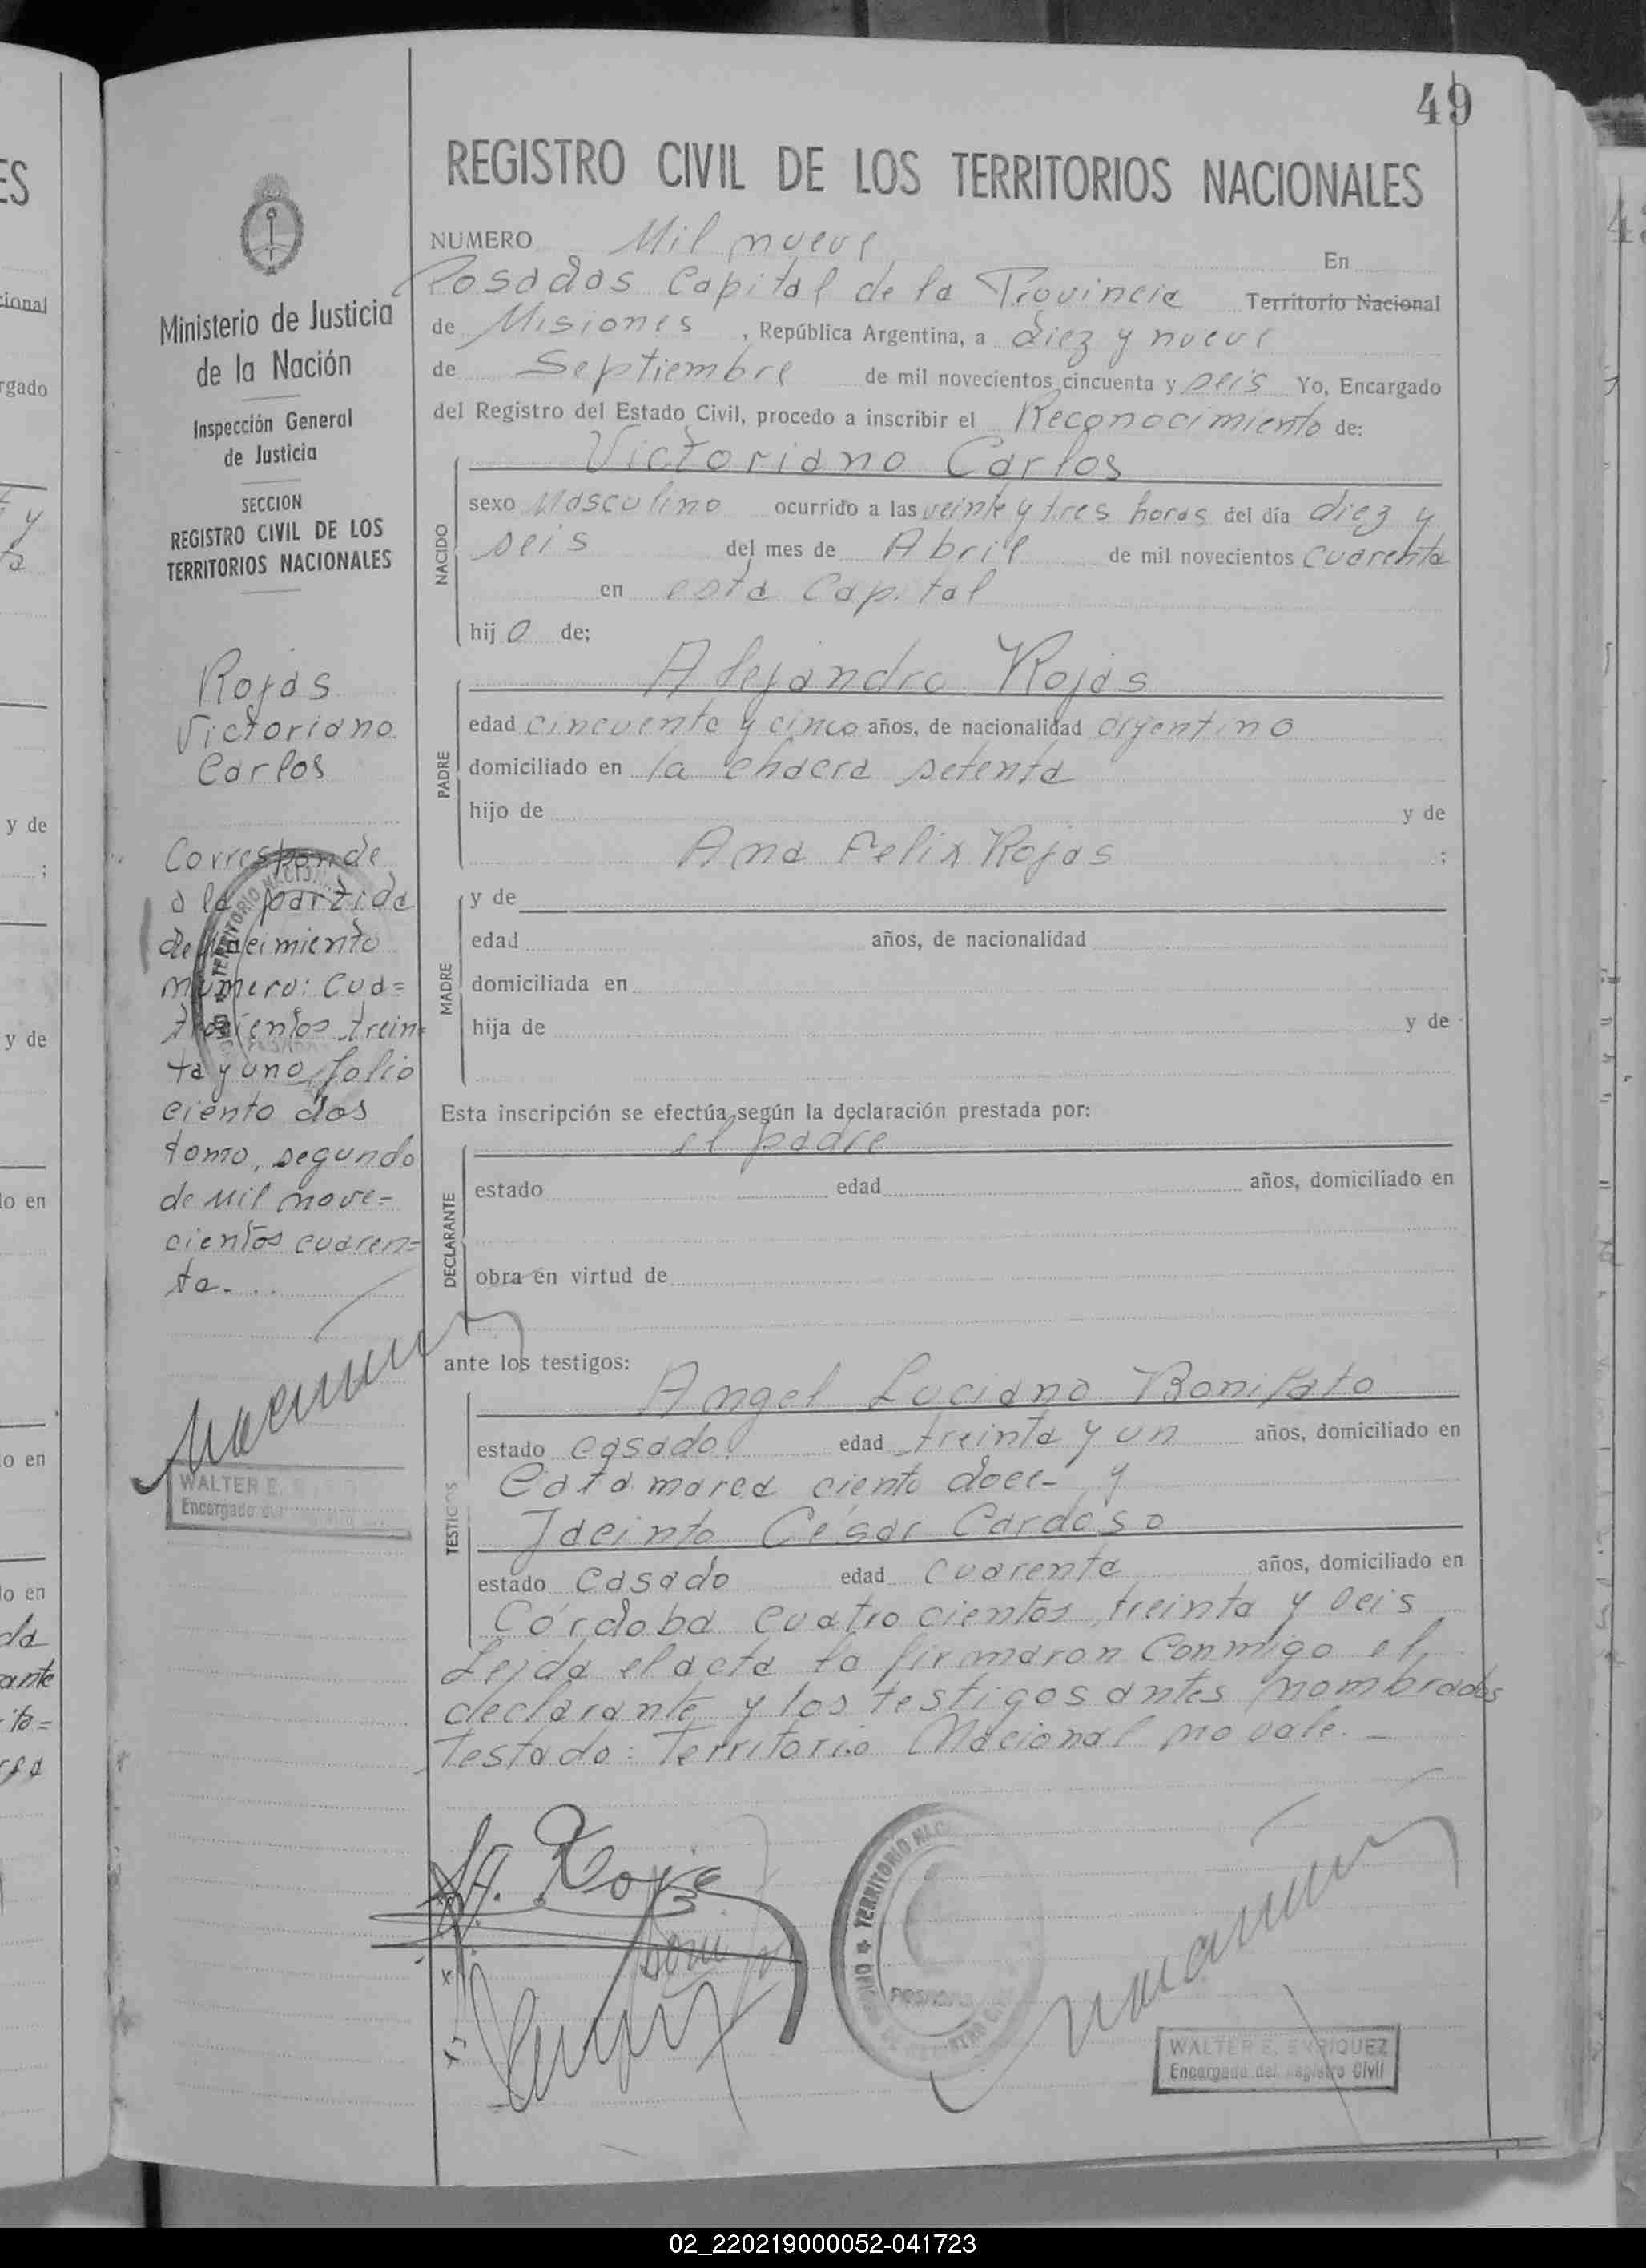 49
REGISTRO CIVIL DE LOS TERRITORIOS NACIONALES
NUMERO Mil nueve En
Posadas Capital de la Provincia Territorio Nacional
de Misiones, República Argentina, a diez y nueve
de Septiembre de mil novecientos cincuenta y seis Yo, Encargado
del Registro del Estado Civil, procedo a inscribir el Reconocimiento de:
Victoriano Carlos
NACIDO
sexo Masculino ocurrido a las veinte y tres horas del día diez y
seis del mes de Abril de mil novecientos cuarenta
en esta Capital
hijo de;
Alejandro Rojas
PADRE
edad cincuenta y cinco años, de nacionalidad argentino
domiciliado en la chacra setenta
hijo de y de
Ana Felix Rojas ;
MADRE
y de
edad años, de nacionalidad
domiciliada en
hija de y de
Esta inscripción se efectúa según la declaración prestada por:
el padre
DECLARANTE
estado edad años, domiciliado en
obra en virtud de
ante los testigos:
Angel Luciano Bonifato
TESTIGOS
estado casado edad treinta y un años, domiciliado en
Catamarca ciento doce- y
Jacinto César Cardoso
estado casado edad cuarenta años, domiciliado en
Córdoba cuatrocientos treinta y seis
Leida el acta la firmaron conmigo el
declarante y los testigos antes nombrados
Testado: Territorio Nacional no vale. —
A. Rojas
POSADAS
WALTER E. ENRIQUEZ
Encargado del Registro Civil
Ministerio de Justicia
de la Nación
Inspección General
de Justicia
SECCION
REGISTRO CIVIL DE LOS
TERRITORIOS NACIONALES
Rojas
Victoriano
Carlos
Corresponde
a la partida
de nacimiento
número: cua=
trocientos trein=
ta y uno, folio
ciento dos
tomo, segundo
de mil nove=
cientos cuaren=
ta. . .
WALTER E.
Encargado del Registro
02_220219000052-041723